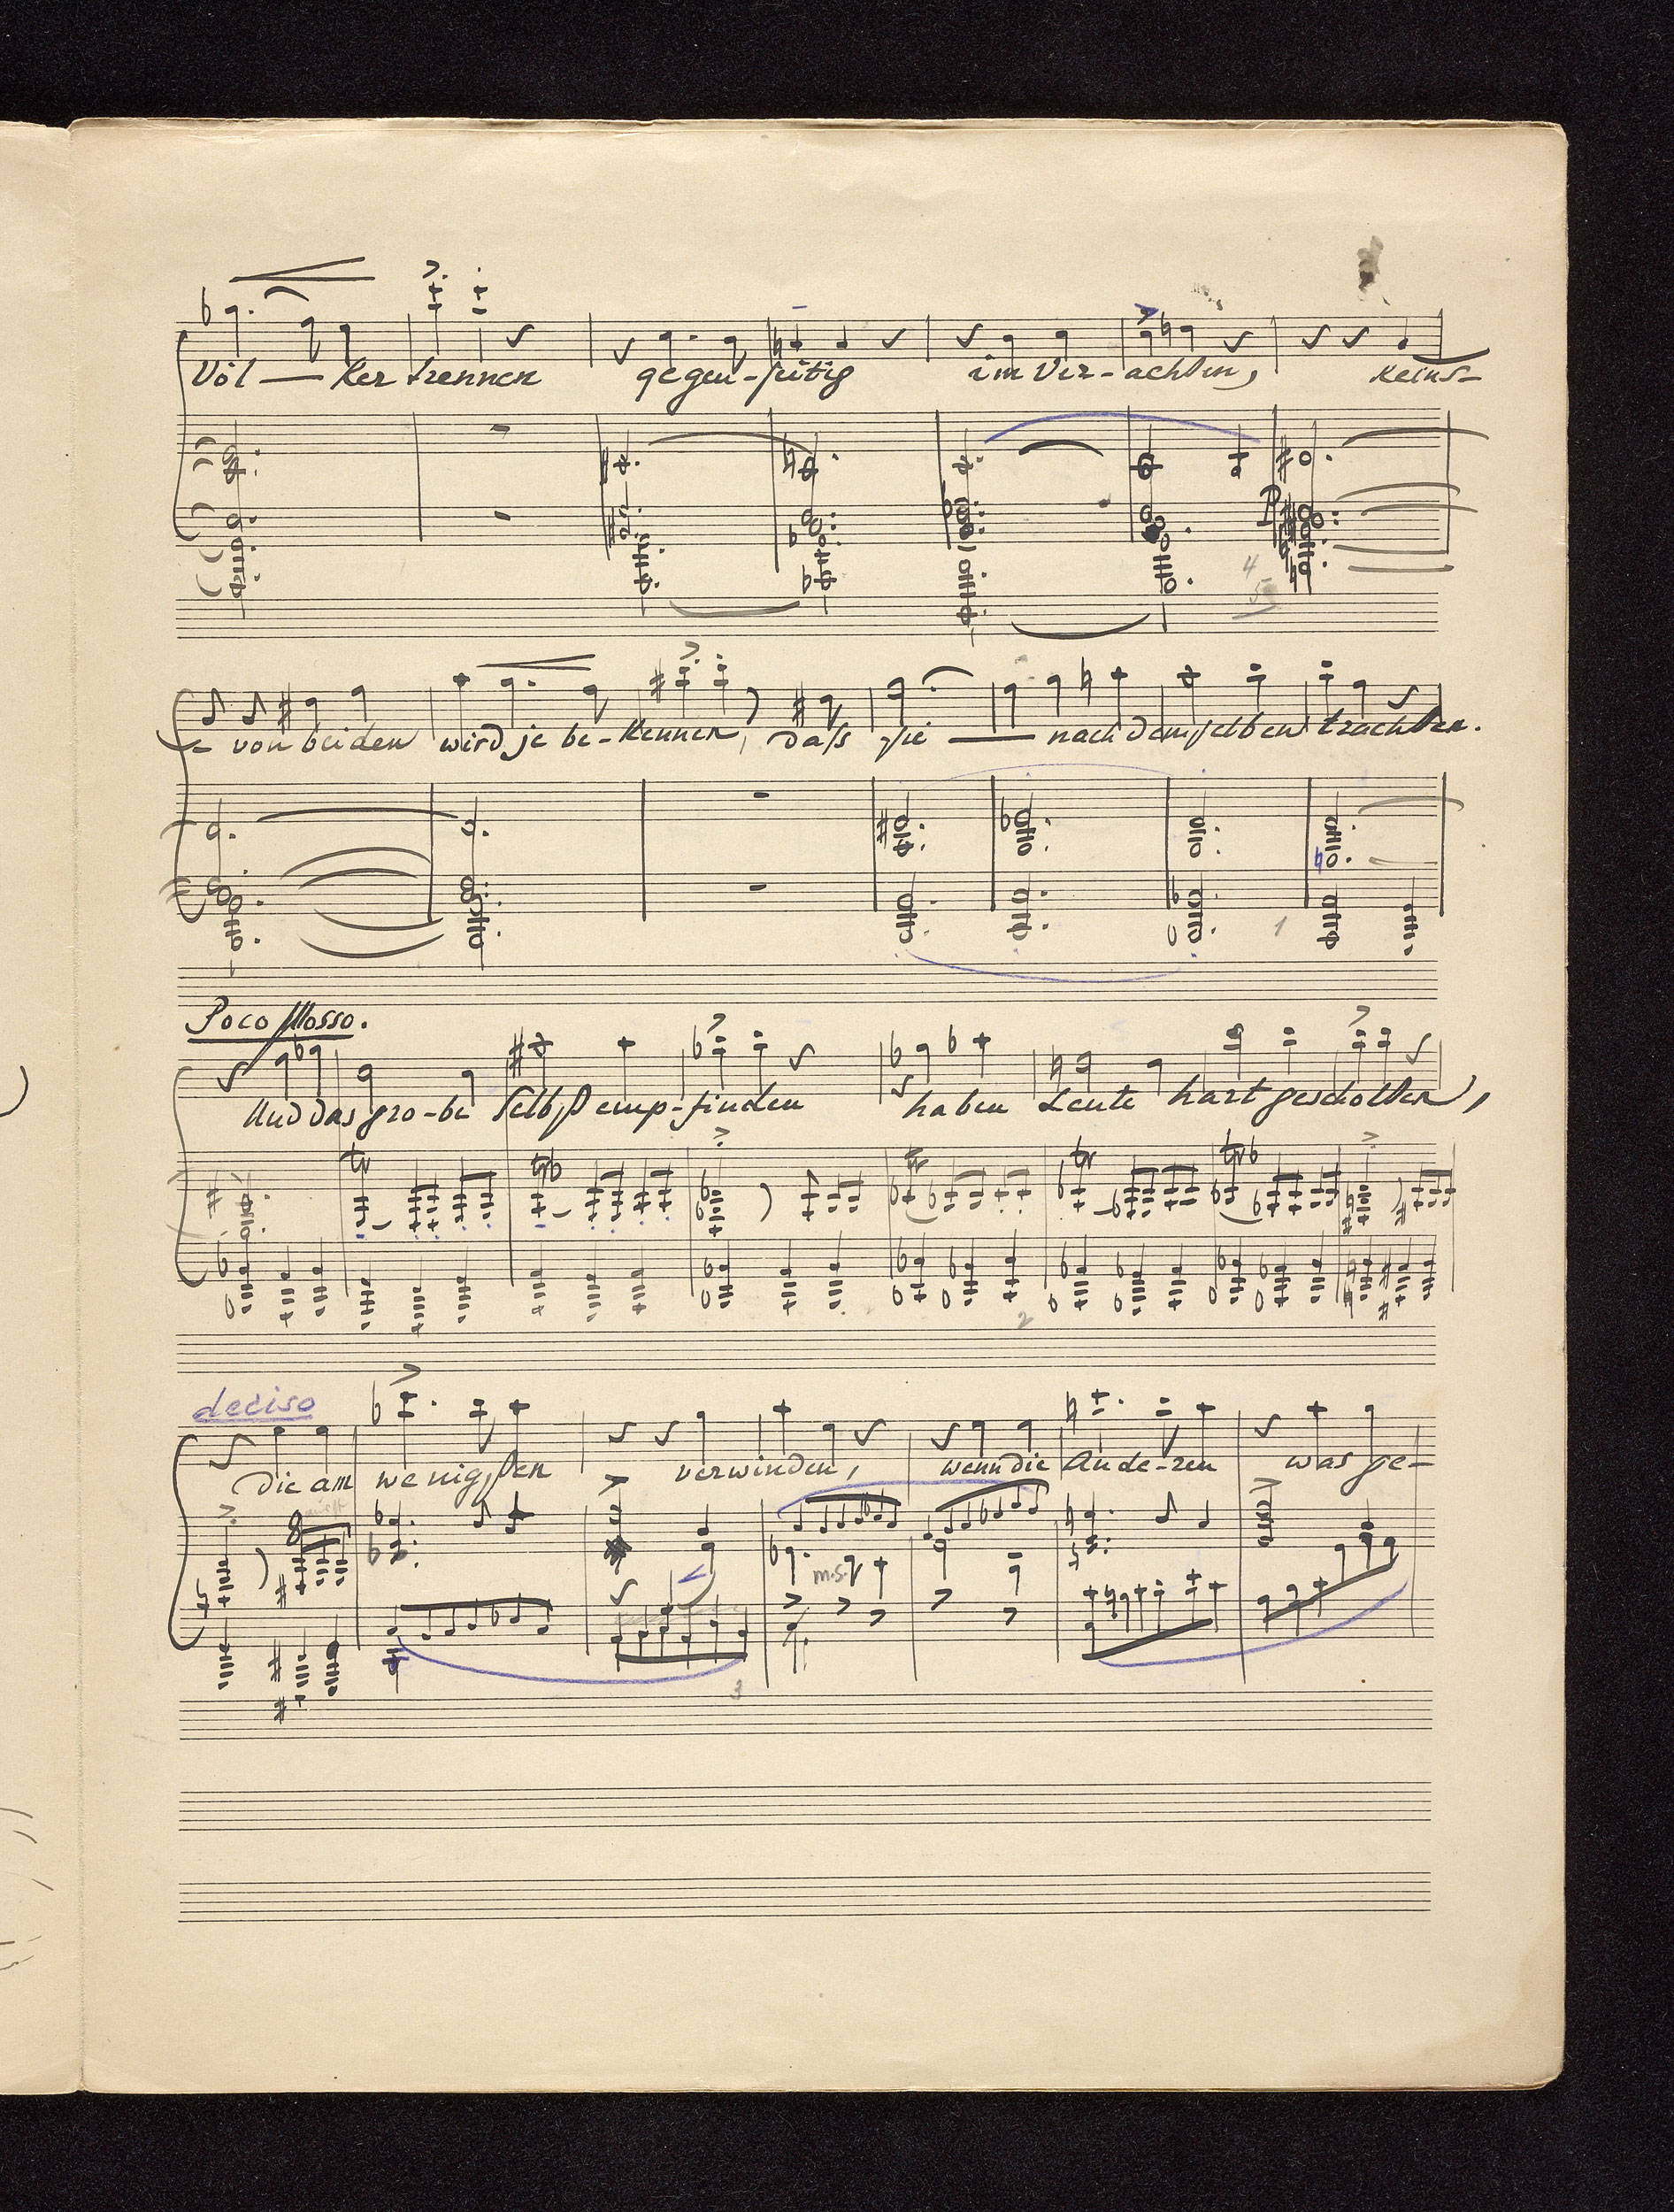 Völ — ker trennen gegen-seitig im Ver-achten, Keins-
4
5
- von beiden wird je be-kennen, dass sie — nach demselben trachten.
1
Poco Mosso.
Und das gro-be Selbst emp-finden haben Leute hart gescholten,
tr tr♭ tr tr tr♭
2
deciso
die am wenigsten verwinden, wenn die Ande-ren was ge-
8
m.s.
3